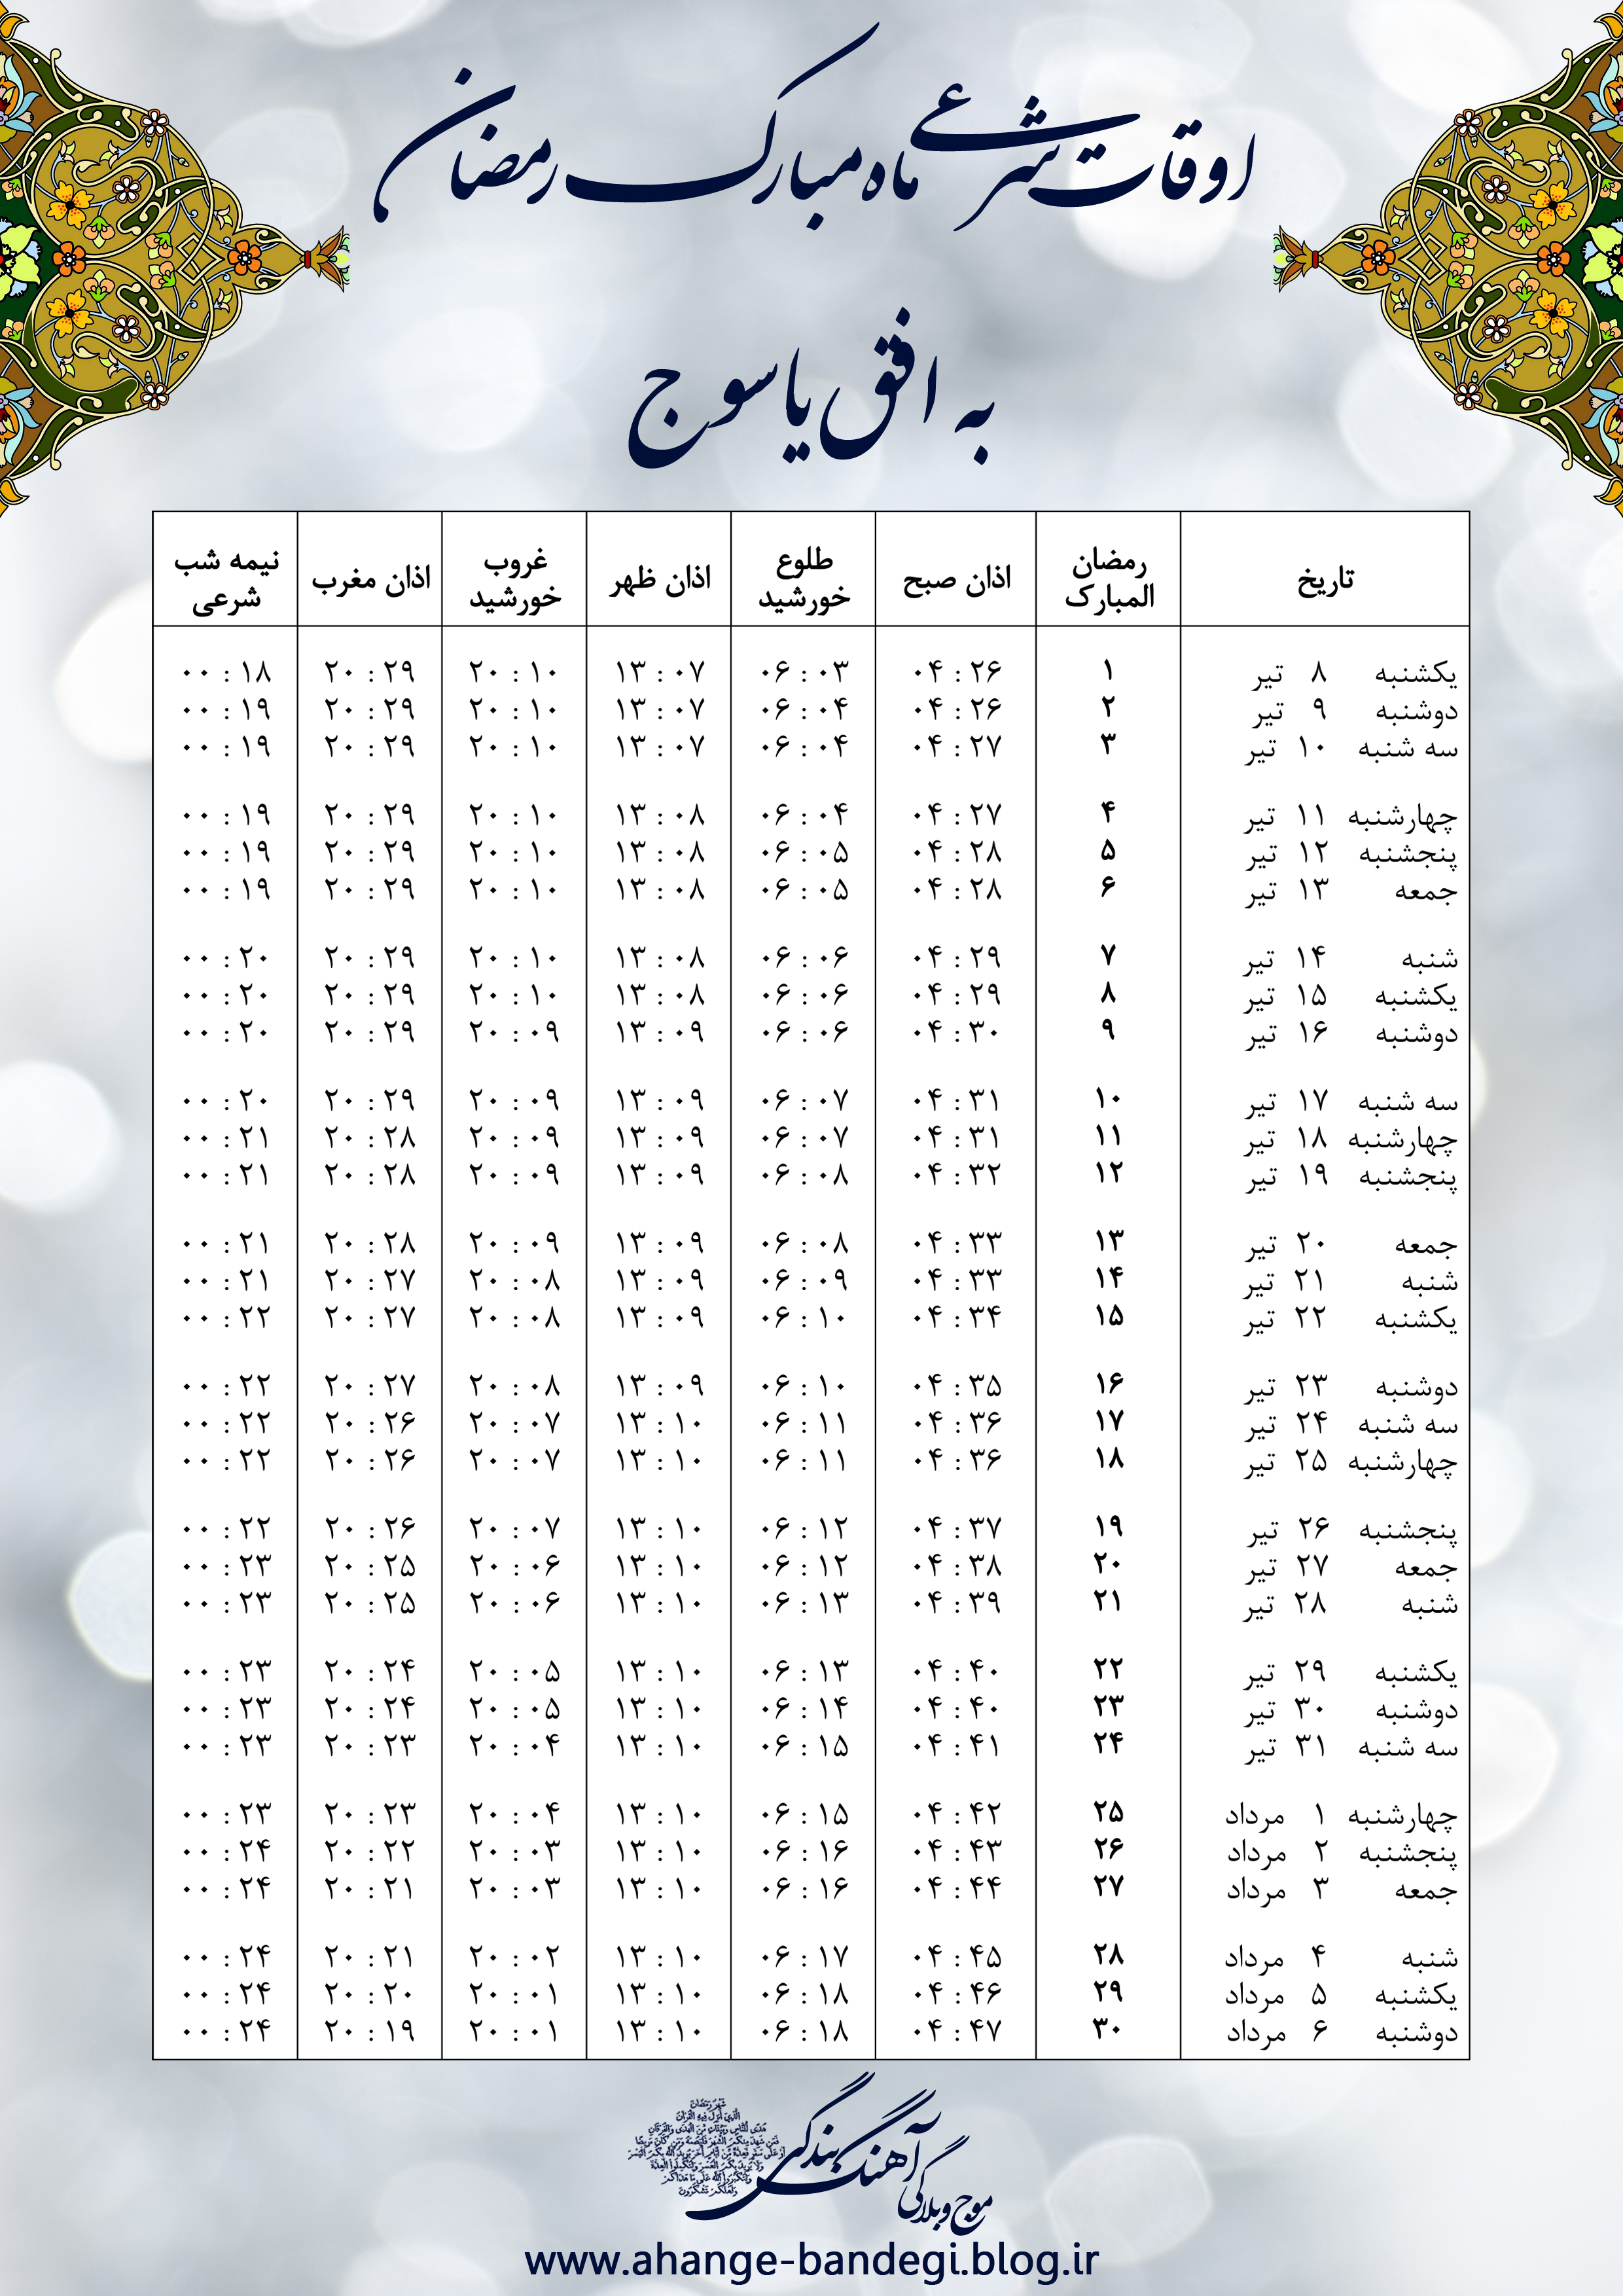 اوقات شرعی ماه مبارک رمضان
به افق یاسوج
تاریخ رمضان المبارک اذان صبح طلوع خورشید اذان ظهر غروب خورشید اذان مغرب نیمه شب شرعی
یکشنبه ۸ تیر ۱ ۰۴:۲۶ ۰۶:۰۳ ۱۳:۰۷ ۲۰:۱۰ ۲۰:۲۹ ۰۰:۱۸
دوشنبه ۹ تیر ۲ ۰۴:۲۶ ۰۶:۰۴ ۱۳:۰۷ ۲۰:۱۰ ۲۰:۲۹ ۰۰:۱۹
سه شنبه ۱۰ تیر ۳ ۰۴:۲۷ ۰۶:۰۴ ۱۳:۰۷ ۲۰:۱۰ ۲۰:۲۹ ۰۰:۱۹
چهارشنبه ۱۱ تیر ۴ ۰۴:۲۷ ۰۶:۰۴ ۱۳:۰۸ ۲۰:۱۰ ۲۰:۲۹ ۰۰:۱۹
پنجشنبه ۱۲ تیر ۵ ۰۴:۲۸ ۰۶:۰۵ ۱۳:۰۸ ۲۰:۱۰ ۲۰:۲۹ ۰۰:۱۹
جمعه ۱۳ تیر ۶ ۰۴:۲۸ ۰۶:۰۵ ۱۳:۰۸ ۲۰:۱۰ ۲۰:۲۹ ۰۰:۱۹
شنبه ۱۴ تیر ۷ ۰۴:۲۹ ۰۶:۰۶ ۱۳:۰۸ ۲۰:۱۰ ۲۰:۲۹ ۰۰:۲۰
یکشنبه ۱۵ تیر ۸ ۰۴:۲۹ ۰۶:۰۶ ۱۳:۰۸ ۲۰:۱۰ ۲۰:۲۹ ۰۰:۲۰
دوشنبه ۱۶ تیر ۹ ۰۴:۳۰ ۰۶:۰۶ ۱۳:۰۹ ۲۰:۰۹ ۲۰:۲۹ ۰۰:۲۰
سه شنبه ۱۷ تیر ۱۰ ۰۴:۳۱ ۰۶:۰۷ ۱۳:۰۹ ۲۰:۰۹ ۲۰:۲۹ ۰۰:۲۰
چهارشنبه ۱۸ تیر ۱۱ ۰۴:۳۱ ۰۶:۰۷ ۱۳:۰۹ ۲۰:۰۹ ۲۰:۲۸ ۰۰:۲۱
پنجشنبه ۱۹ تیر ۱۲ ۰۴:۳۲ ۰۶:۰۸ ۱۳:۰۹ ۲۰:۰۹ ۲۰:۲۸ ۰۰:۲۱
جمعه ۲۰ تیر ۱۳ ۰۴:۳۳ ۰۶:۰۸ ۱۳:۰۹ ۲۰:۰۹ ۲۰:۲۸ ۰۰:۲۱
شنبه ۲۱ تیر ۱۴ ۰۴:۳۳ ۰۶:۰۹ ۱۳:۰۹ ۲۰:۰۸ ۲۰:۲۷ ۰۰:۲۱
یکشنبه ۲۲ تیر ۱۵ ۰۴:۳۴ ۰۶:۱۰ ۱۳:۰۹ ۲۰:۰۸ ۲۰:۲۷ ۰۰:۲۲
دوشنبه ۲۳ تیر ۱۶ ۰۴:۳۵ ۰۶:۱۰ ۱۳:۰۹ ۲۰:۰۸ ۲۰:۲۷ ۰۰:۲۲
سه شنبه ۲۴ تیر ۱۷ ۰۴:۳۶ ۰۶:۱۱ ۱۳:۱۰ ۲۰:۰۷ ۲۰:۲۶ ۰۰:۲۲
چهارشنبه ۲۵ تیر ۱۸ ۰۴:۳۶ ۰۶:۱۱ ۱۳:۱۰ ۲۰:۰۷ ۲۰:۲۶ ۰۰:۲۲
پنجشنبه ۲۶ تیر ۱۹ ۰۴:۳۷ ۰۶:۱۲ ۱۳:۱۰ ۲۰:۰۷ ۲۰:۲۶ ۰۰:۲۲
جمعه ۲۷ تیر ۲۰ ۰۴:۳۸ ۰۶:۱۲ ۱۳:۱۰ ۲۰:۰۶ ۲۰:۲۵ ۰۰:۲۳
شنبه ۲۸ تیر ۲۱ ۰۴:۳۹ ۰۶:۱۳ ۱۳:۱۰ ۲۰:۰۶ ۲۰:۲۵ ۰۰:۲۳
یکشنبه ۲۹ تیر ۲۲ ۰۴:۴۰ ۰۶:۱۳ ۱۳:۱۰ ۲۰:۰۵ ۲۰:۲۴ ۰۰:۲۳
دوشنبه ۳۰ تیر ۲۳ ۰۴:۴۰ ۰۶:۱۴ ۱۳:۱۰ ۲۰:۰۵ ۲۰:۲۴ ۰۰:۲۳
سه شنبه ۳۱ تیر ۲۴ ۰۴:۴۱ ۰۶:۱۵ ۱۳:۱۰ ۲۰:۰۴ ۲۰:۲۳ ۰۰:۲۳
چهارشنبه ۱ مرداد ۲۵ ۰۴:۴۲ ۰۶:۱۵ ۱۳:۱۰ ۲۰:۰۴ ۲۰:۲۳ ۰۰:۲۳
پنجشنبه ۲ مرداد ۲۶ ۰۴:۴۳ ۰۶:۱۶ ۱۳:۱۰ ۲۰:۰۳ ۲۰:۲۲ ۰۰:۲۴
جمعه ۳ مرداد ۲۷ ۰۴:۴۴ ۰۶:۱۶ ۱۳:۱۰ ۲۰:۰۳ ۲۰:۲۱ ۰۰:۲۴
شنبه ۴ مرداد ۲۸ ۰۴:۴۵ ۰۶:۱۷ ۱۳:۱۰ ۲۰:۰۲ ۲۰:۲۱ ۰۰:۲۴
یکشنبه ۵ مرداد ۲۹ ۰۴:۴۶ ۰۶:۱۸ ۱۳:۱۰ ۲۰:۰۱ ۲۰:۲۰ ۰۰:۲۴
دوشنبه ۶ مرداد ۳۰ ۰۴:۴۷ ۰۶:۱۸ ۱۳:۱۰ ۲۰:۰۱ ۲۰:۱۹ ۰۰:۲۴
موج وبلاگی آهنگ بندگی
شَهْرُ رَمَضَانَ
الَّذِيَ أُنزِلَ فِيهِ الْقُرْآنُ
هُدًى لِّلنَّاسِ وَبَيِّنَاتٍ مِّنَ الْهُدَى وَالْفُرْقَانِ
فَمَن شَهِدَ مِنكُمُ الشَّهْرَ فَلْيَصُمْهُ وَمَن كَانَ مَرِيضًا
أَوْ عَلَى سَفَرٍ فَعِدَّةٌ مِّنْ أَيَّامٍ أُخَرَ يُرِيدُ اللّهُ بِكُمُ الْيُسْرَ
وَلاَ يُرِيدُ بِكُمُ الْعُسْرَ وَلِتُكْمِلُواْ الْعِدَّةَ
وَلِتُكَبِّرُواْ اللّهَ عَلَى مَا هَدَاكُمْ
وَلَعَلَّكُمْ تَشْكُرُونَ
www.ahange-bandegi.blog.ir